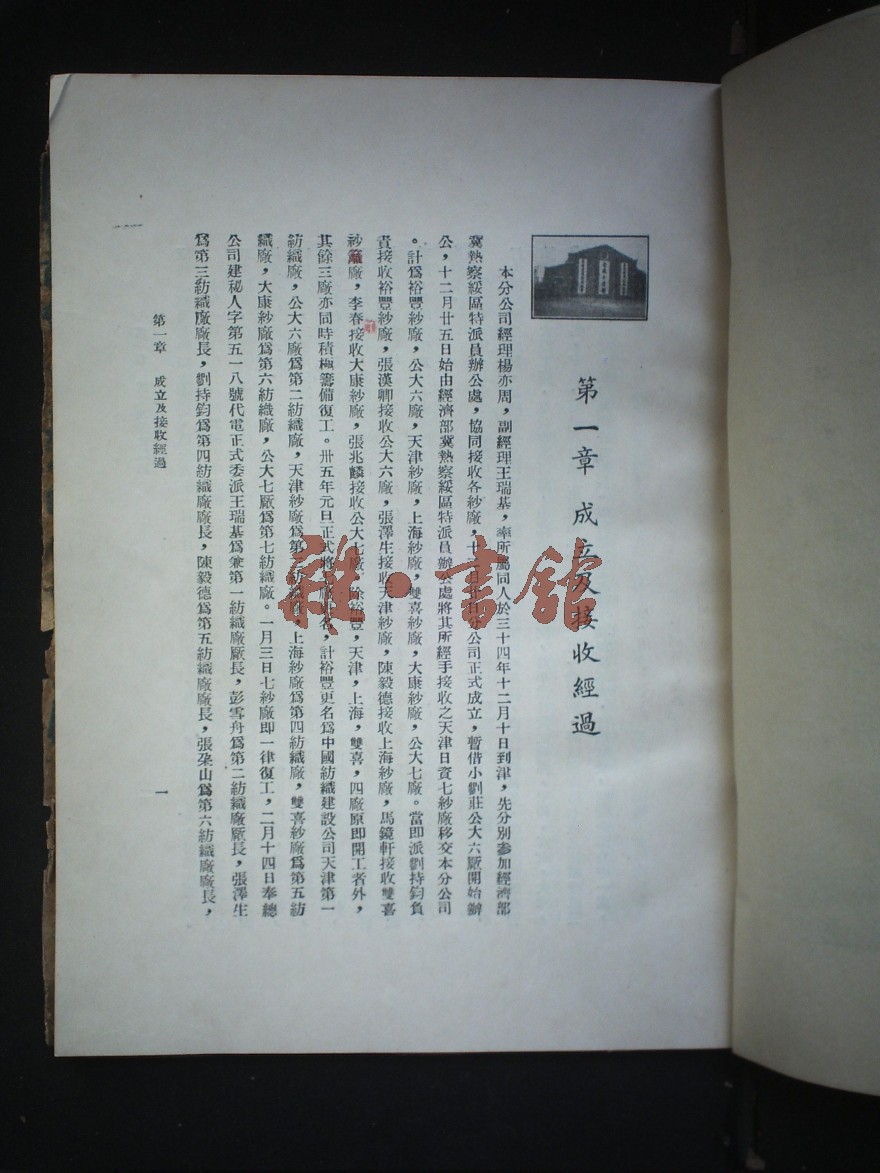 第一章 成立及接收經過
本分公司經理楊亦周，副經理王瑞基，率所屬同人於三十四年十二月十日到津，先分別參加經濟部
冀熱察綏區特派員辦公處，協同接收各紗廠，十二日我分公司正式成立，暫借小劉莊公大六厰開始辦
公，十二月廿五日始由經濟部冀熱察綏區特派員辦公處將其所經手接收之天津日資七紗廠移交本分公司
。計爲裕豐紗廠，公大六廠，天津紗廠，上海紗廠，雙喜紗廠，大康紗廠，公大七廠。當即派劉持鈞負
責接收裕豐紗廠，張漢卿接收公大六廠，張澤生接收天津紗廠，陳毅德接收上海紗廠，馬鏡軒接收雙喜
紗廠，李春接收大康紗廠，張兆麟接收公大七廠，除裕豐，天津，上海，雙喜，四廠原即開工者外，
其餘三廠亦同時積極籌備復工。卅五年元旦正式將名，計裕豐更名爲中國紡織建設公司天津第一
紡織廠，公大六廠爲第二紡織廠，天津紗廠爲第三紡織廠，上海紗廠爲第四紡織廠，雙喜紗廠爲第五紡
織廠，大康紗廠爲第六紡織廠，公大七厰爲第七紡織廠。一月三日七紗廠即一律復工，二月十四日奉總
公司建秘人字第五一八號代電正式委派王瑞基爲兼第一紡織廠厰長，彭雪舟爲第二紡織廠厰長，張澤生
爲第三紡織廠廠長，劉持鈞爲第四紡織廠廠長，陳毅德爲第五紡織廠廠長，張朶山爲第六紡織廠廠長，
第一章 成立及接收經過
一
雜·書館